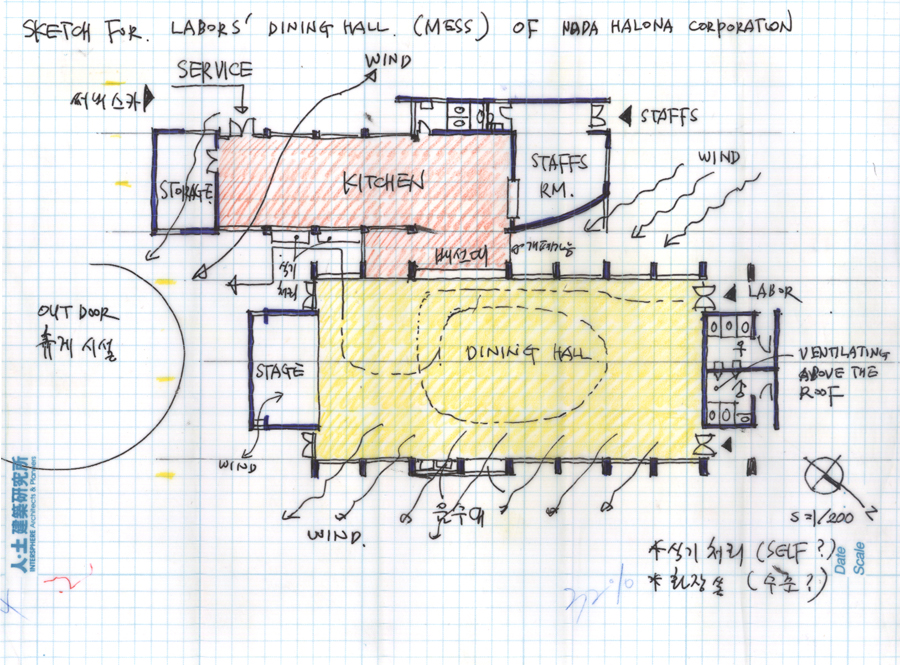 SKETCH FOR. LABORS' DINING HALL. (MESS) OF NADA HALONA CORPORATION
SERVICE
WIND
서비스카
STAFFS
STORAGE
KITCHEN
STAFFS
RM.
WIND
배선대
식기
OUT DOOR
휴게 시설
LABOR
STAGE
DINING HALL
VENTILATING
ABOVE THE
ROOF
WIND
WIND.
음수대
S=1/200
N
*식기처리 (SELF?)
*화장실 (수준?)
人·土 建築研究所
INTERSPHERE Architects & Planners
Date
Scale